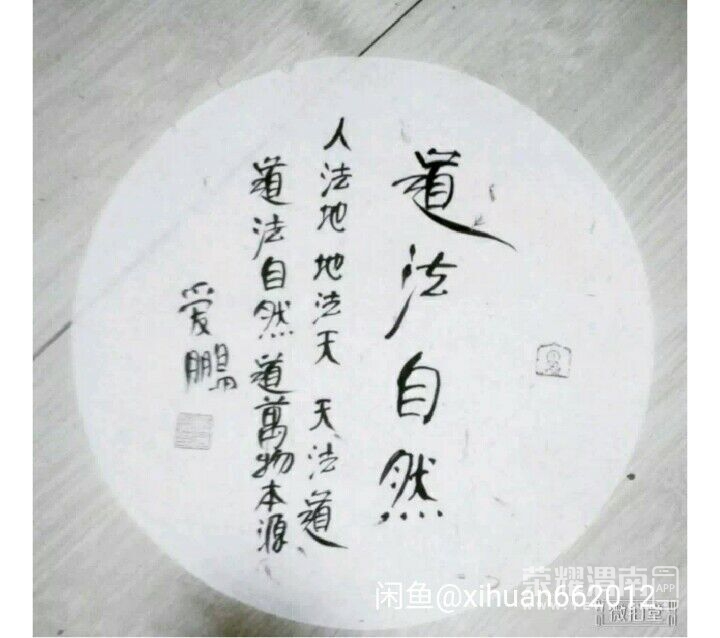 道法自然
人法地地法天天法道
道法自然道萬物本源
爱鵬
荣耀渭南
APP
闲鱼@xihuan662012
微拍堂